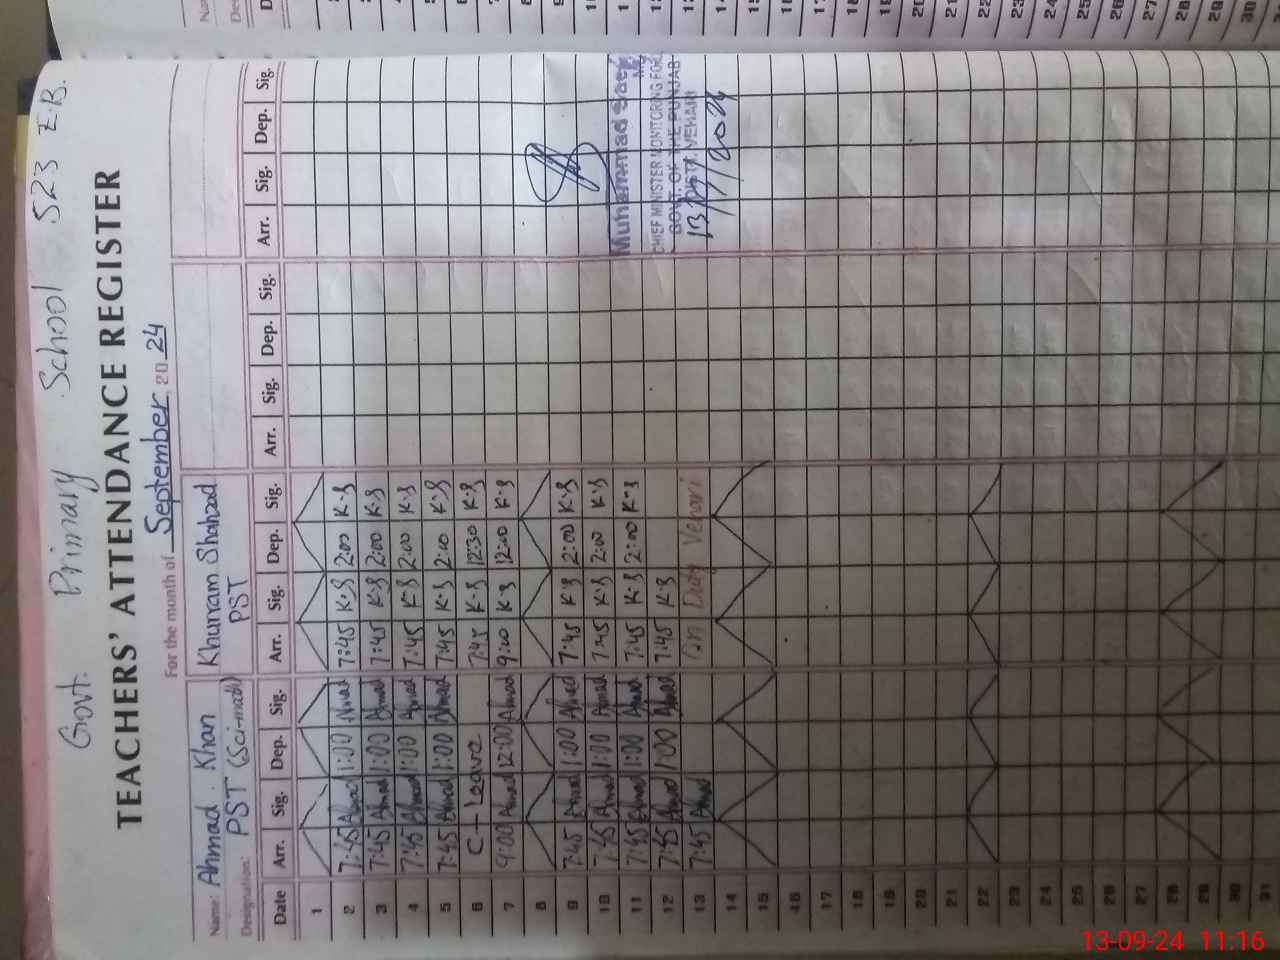 Govt. Primary School 523 E.B.
TEACHERS' ATTENDANCE REGISTER
For the month of September 20 24
Name: Ahmad Khan Khurram Shahzad
Designation: PST (Sci-math) PST
Date Arr. Sig. Dep. Sig. Arr. Sig. Dep. Sig. Arr. Sig. Dep. Sig. Arr. Sig. Dep. Sig.
1
2 7:45 Ahmad 1:00 Ahmad 7:45 K.S 2:00 K.S
3 7:45 Ahmad 1:00 Ahmad 7:45 K.S 2:00 K.S
4 7:45 Ahmad 1:00 Ahmad 7:45 K.S 2:00 K.S
5 7:45 Ahmad 1:00 Ahmad 7:45 K.S 2:00 K.S
6 C-Leave 7:45 K.S 12:30 K.S
7 9:00 Ahmad 12:00 Ahmad 9:00 K.S 12:00 K.S
8
9 7:45 Ahmad 1:00 Ahmad 7:45 K.S 2:00 K.S
10 7:45 Ahmad 1:00 Ahmad 7:45 K.S 2:00 K.S
11 7:45 Ahmad 1:00 Ahmad 7:45 K.S 2:00 K.S Muhammad
12 7:45 Ahmad 1:00 Ahmad 7:45 K.S CHIEF MINISTER MONITORING FORCE
GOVT. OF THE PUNJAB
DISTT. VEHARI
13 7:45 Ahmad On Duty Vehari 13/9/2024
14
15
16
17
18
19
20
21
22
23
24
25
26
27
28
29
30
31
13-09-24 11:16